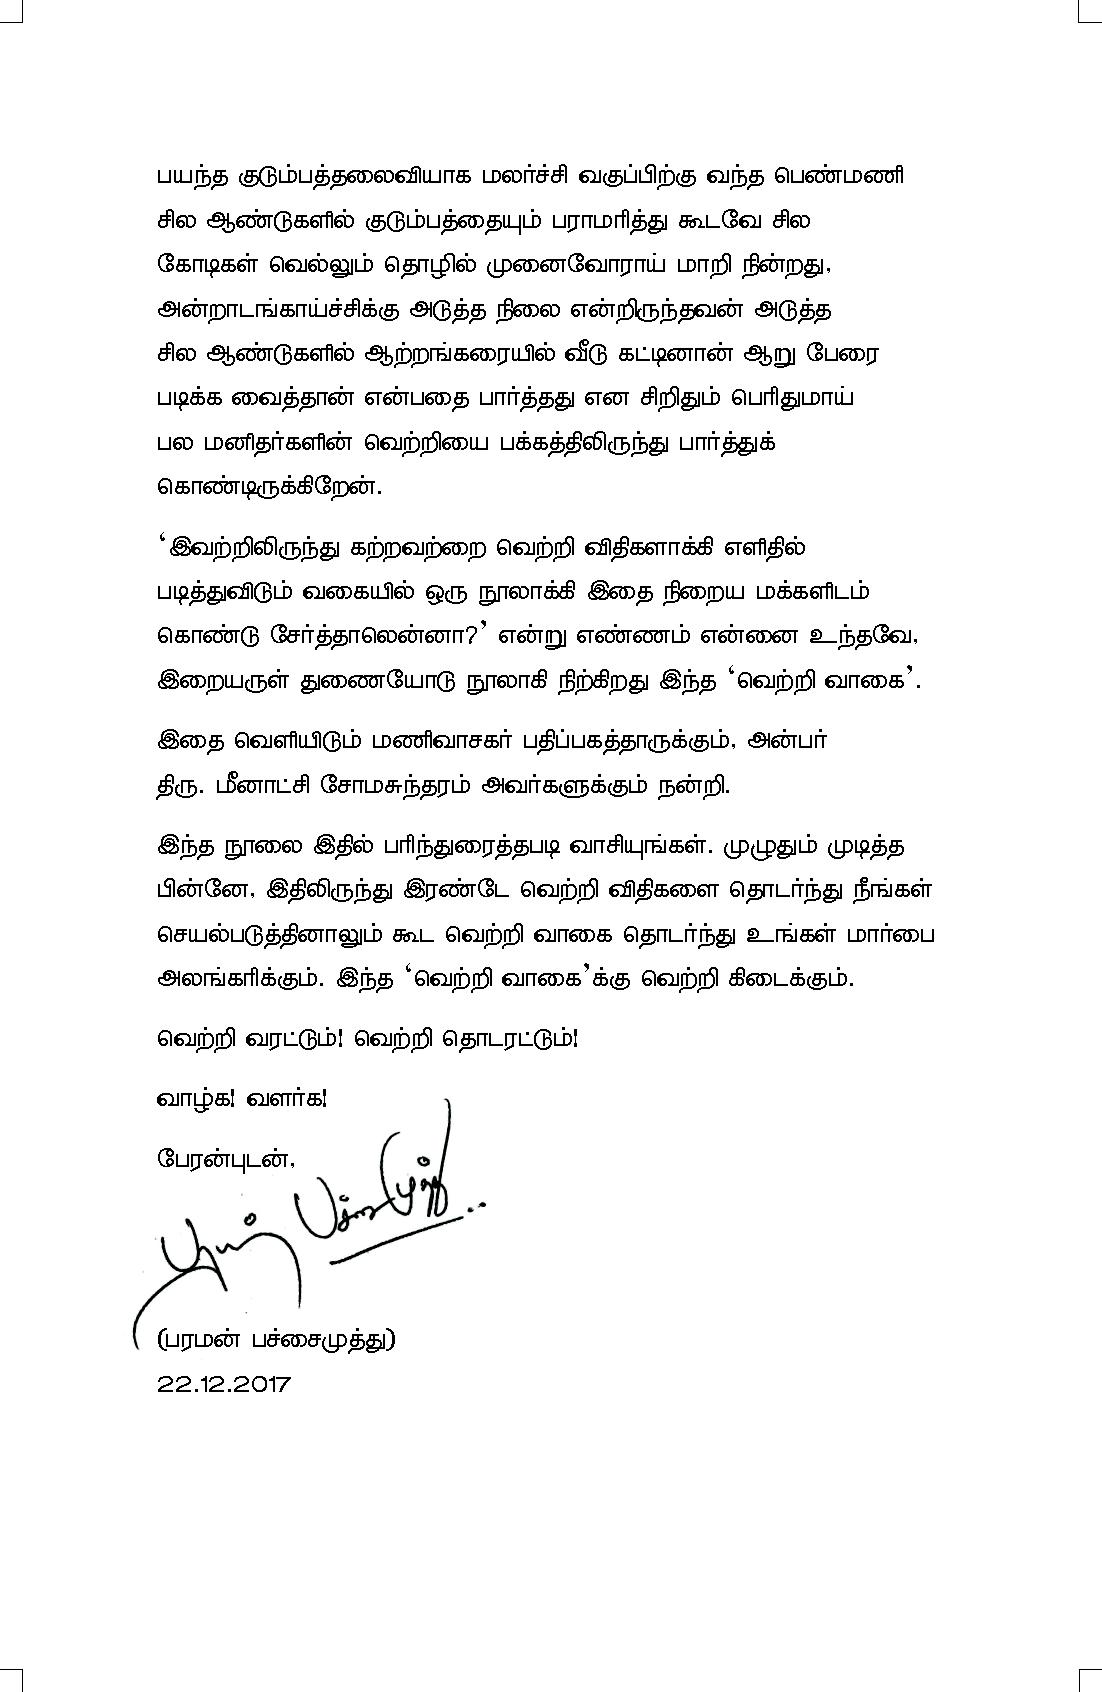 பயந்த குடும்பத்தலைவியாக மலர்ச்சி வகுப்பிற்கு வந்த பெண்மணி
சில ஆண்டுகளில் குடும்பத்தையும் பராமரித்து கூடவே சில
கோடிகள் வெல்லும் தொழில் முனைவோராய் மாறி நின்றது,
அன்றாடங்காய்ச்சிக்கு அடுத்த நிலை என்றிருந்தவன் அடுத்த
சில ஆண்டுகளில் ஆற்றங்கரையில் வீடு கட்டினான் ஆறு பேரை
படிக்க வைத்தான் என்பதை பார்த்தது என சிறிதும் பெரிதுமாய்
பல மனிதர்களின் வெற்றியை பக்கத்திலிருந்து பார்த்துக்
கொண்டிருக்கிறேன்.
‘இவற்றிலிருந்து கற்றவற்றை வெற்றி விதிகளாக்கி எளிதில்
படித்துவிடும் வகையில் ஒரு நூலாக்கி இதை நிறைய மக்களிடம்
கொண்டு சேர்த்தாலென்னா?’ என்று எண்ணம் என்னை உந்தவே,
இறையருள் துணையோடு நூலாகி நிற்கிறது இந்த ‘வெற்றி வாகை’.
இதை வெளியிடும் மணிவாசகர் பதிப்பகத்தாருக்கும், அன்பர்
திரு. மீனாட்சி சோமசுந்தரம் அவர்களுக்கும் நன்றி.
இந்த நூலை இதில் பரிந்துரைத்தபடி வாசியுங்கள். முழுதும் முடித்த
பின்னே, இதிலிருந்து இரண்டே வெற்றி விதிகளை தொடர்ந்து நீங்கள்
செயல்படுத்தினாலும் கூட வெற்றி வாகை தொடர்ந்து உங்கள் மார்பை
அலங்கரிக்கும். இந்த ‘வெற்றி வாகை’க்கு வெற்றி கிடைக்கும்.
வெற்றி வரட்டும்! வெற்றி தொடரட்டும்!
வாழ்க! வளர்க!
பேரன்புடன்,
பரமன் பச்சைமுத்து..
(பரமன் பச்சைமுத்து)
22.12.2017